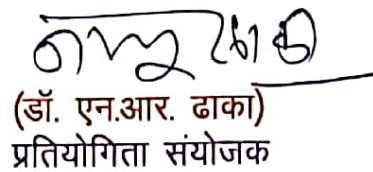 (डॉ. एन.आर. ढाका)
प्रतियोगिता संयोजक